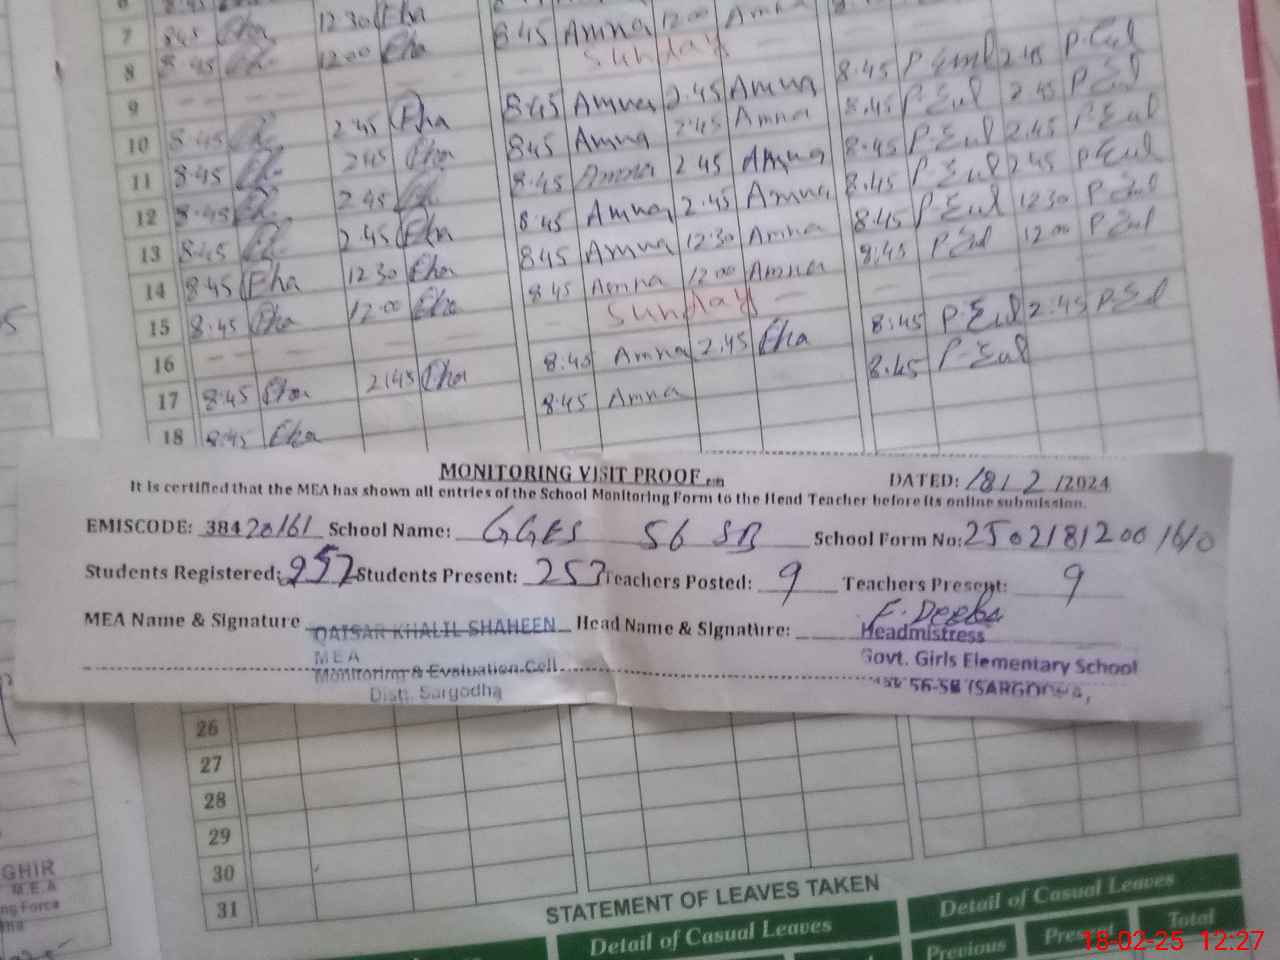 7 8:45 Eha 12:30 Eha 8:45 Amna 12:00 Amna
8 8:45 12:00 Eha Sunday 8:45 P.Eul 2:45 P.Eul
9 — — — — 8:45 Amna 2:45 Amna 8:45 P.Eul 2:45 P.Eul
10 8:45 2:45 Eha 8:45 Amna 2:45 Amna 8:45 P.Eul 2:45 P.Eul
11 8:45 2:45 Eha 8:45 Amna 2:45 Amna 8:45 P.Eul 2:45 P.Eul
12 8:45 2:45 8:45 Amna 2:45 Amna 8:45 P.Eul 12:30 P.Eul
13 8:45 2:45 Eha 8:45 Amna 12:30 Amna 8:45 P.Eul 12:00 P.Eul
14 8:45 Eha 12:30 Eha 8:45 Amna 12:00 Amna
15 8:45 Eha 12:00 Eha Sunday 8:45 P.Eul 2:45 P.Eul
16 — — — — 8:45 Amna 2:45 Eha 8:45 P.Eul
17 8:45 Eha 2:45 Eha 8:45 Amna
18 8:45 Eha
MONITORING VISIT PROOF DATED: 18/2/2024
It is certified that the MEA has shown all entries of the School Monitoring Form to the Head Teacher before its online submission.
EMISCODE: 38420161 School Name: GGES 56 SB School Form No: 25021812001610
Students Registered: 257 Students Present: 253 Teachers Posted: 9 Teachers Present: 9
F. Deeba
MEA Name & Signature QAISAR KHALIL SHAHEEN Head Name & Signature: Headmistress
MEA Govt. Girls Elementary School
Monitoring & Evaluation Cell 56-SB (SARGODHA)
Distt. Sargodha
26
27
28
29
30
31
GHIR
M.E.A
ng Force
STATEMENT OF LEAVES TAKEN
Detail of Casual Leaves
Detail of Casual Leaves
Previous Present Total
18-02-25 12:27